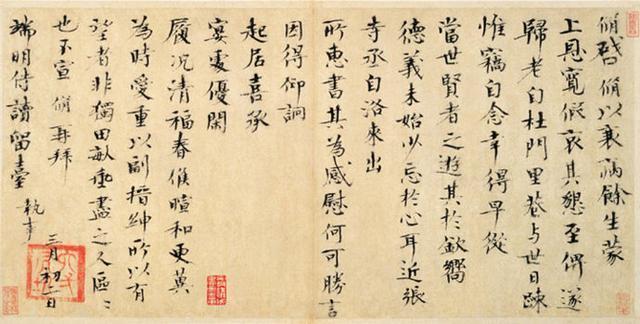 脩啓脩以衰病餘生蒙
上恩寬假哀其懇至俾遂
歸老自杜門里巷与世日疎
惟竊自念幸得早從
當世賢者之遊其於欽嚮
德義未始少忘於心耳近張
寺丞自洛來出
所惠書其為感慰何可勝言
因得仰詢
起居喜承
宴處優閑
履況清福春候暄和更冀
為時愛重以副搢紳所以有
望者非獨田畝垂盡之人區〻
也不宣脩再拜
端明侍讀留臺執事
三月初二日